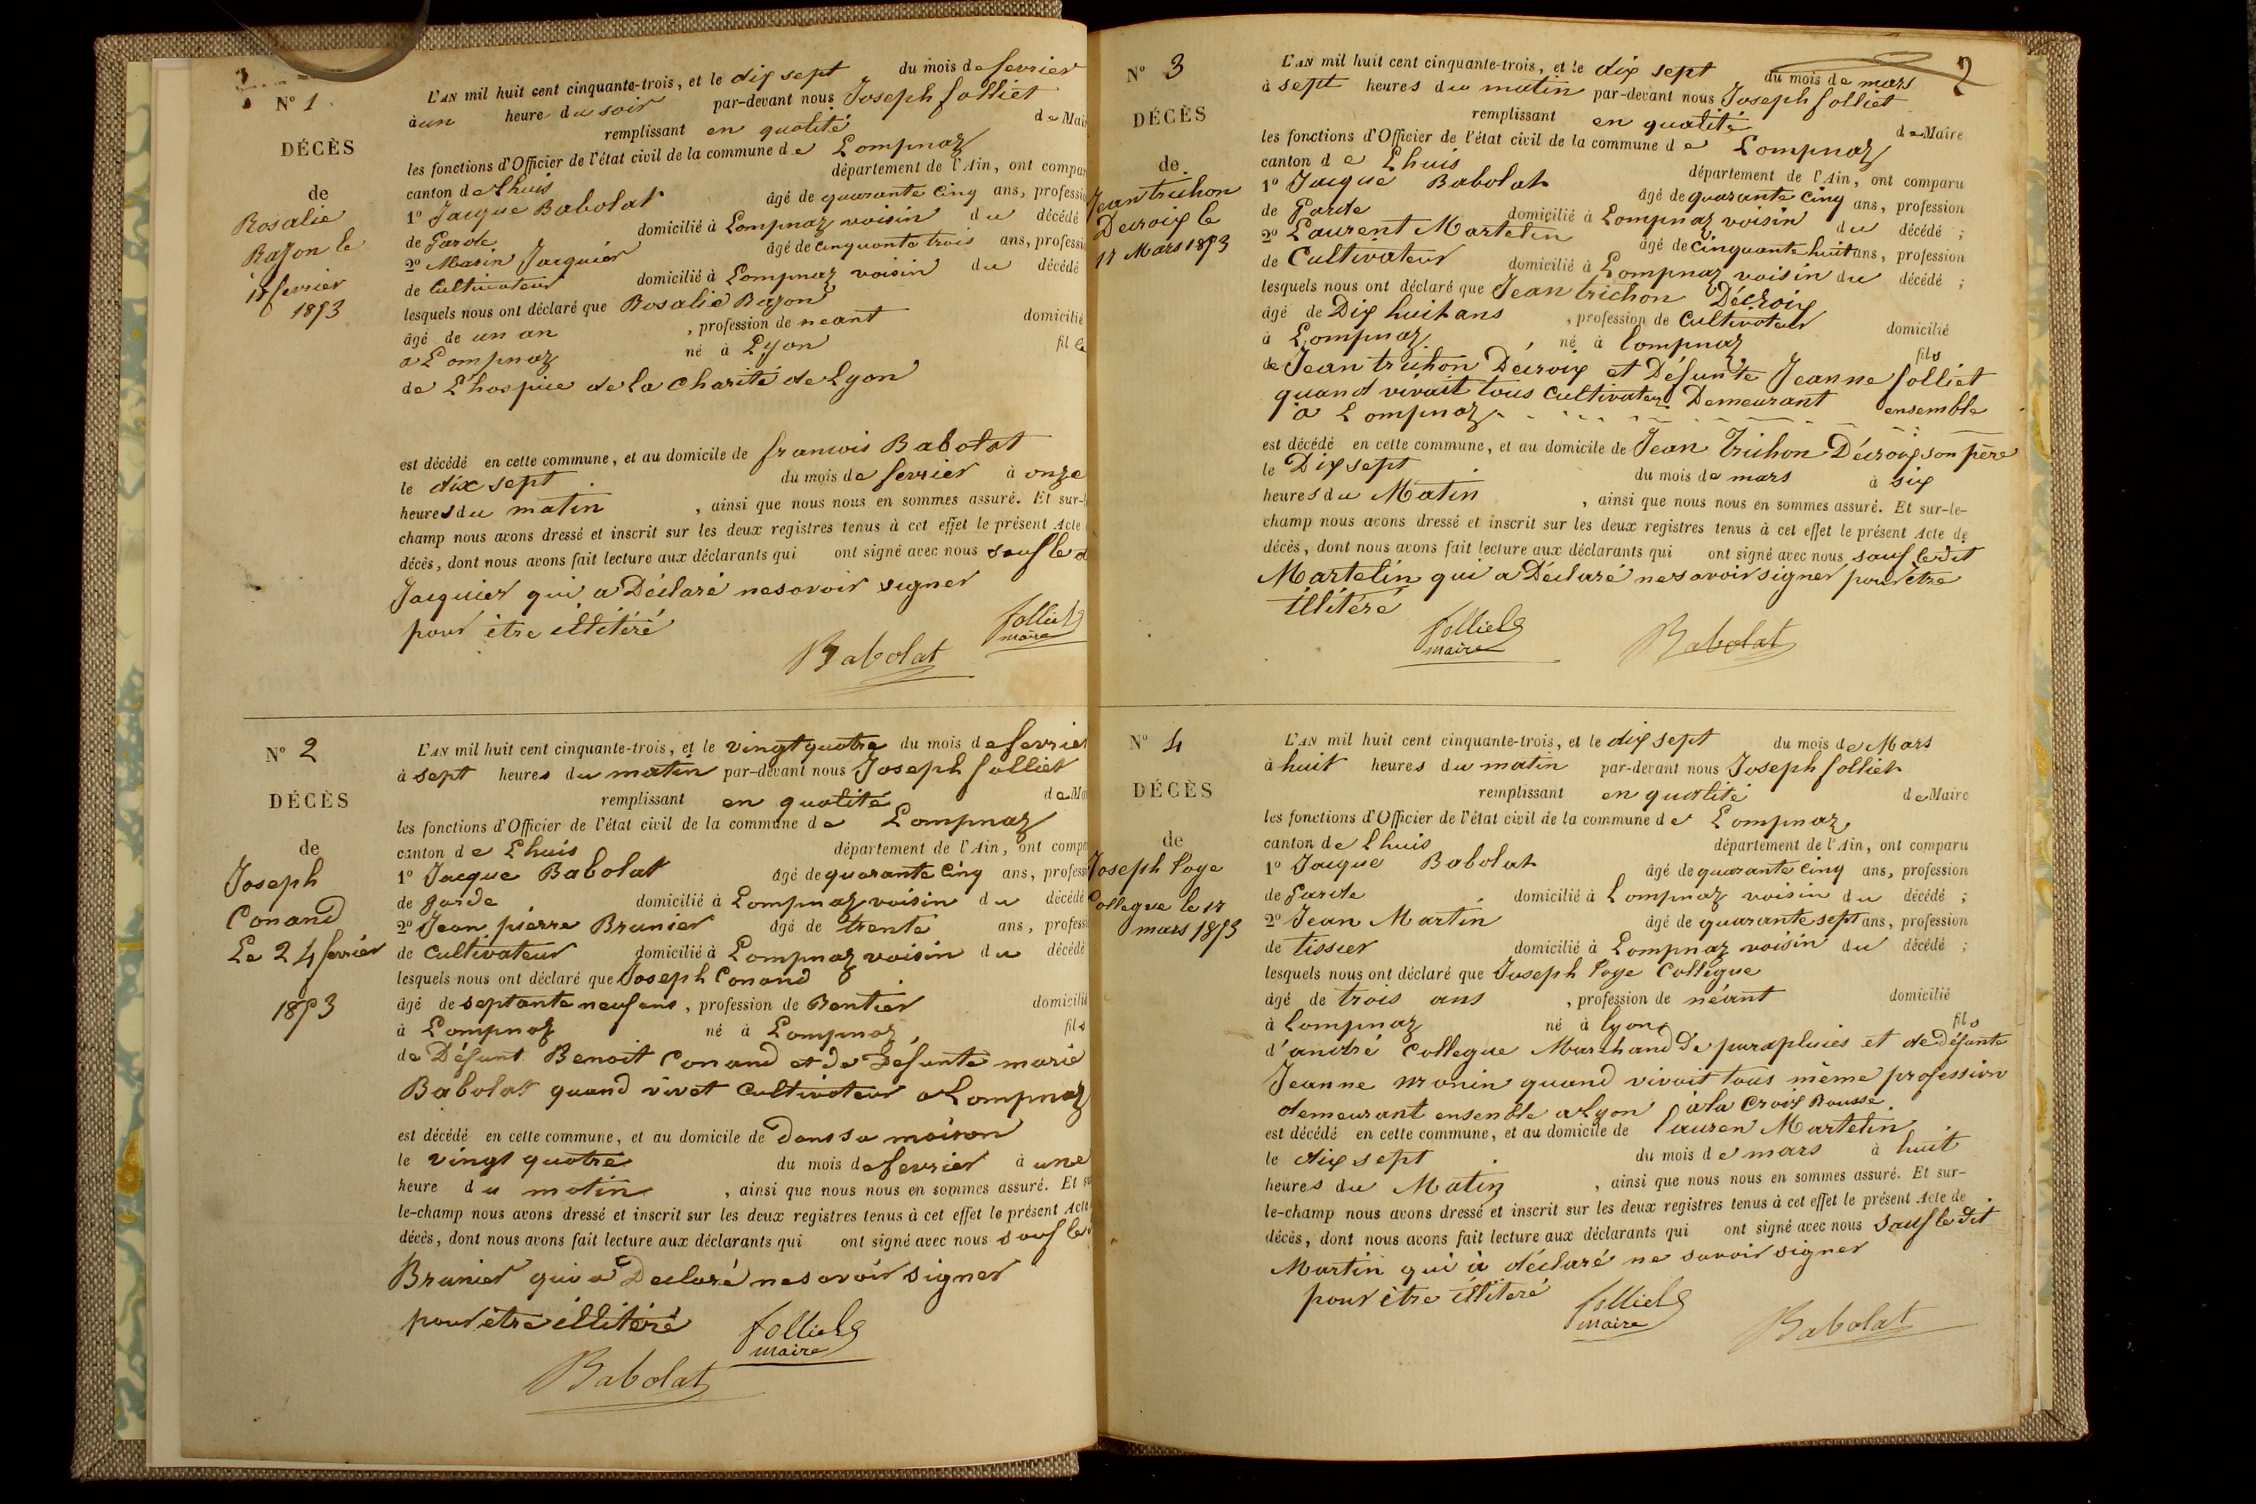 Nº 1
DÉCÈS
de
Rosalie
Bajon le
17 fevrier
1853
L'AN mil huit cent cinquante-trois, et le dix sept du mois de fevrier
à un heure du soir par-devant nous Joseph folliet
remplissant en qualité de Mai
les fonctions d'Officier de l'état civil de la commune de Lompnaz
canton de Lhuis département de l'Ain, ont compar
1º Jacque Babolat âgé de quarante cinq ans, professi
de Garde domicilié à Lompnaz voisin du décédé
2º Marin Jacquier âgé de cinquante trois ans, professi
de Cultivateur domicilié à Lompnaz voisin du décédé
lesquels nous ont déclaré que Rosalie Bajon
âgé de un an , profession de neant domicilié
a Lompnaz né à Lyon fil le
de Lhospice de La Charité de Lyon
est décédé en cette commune, et au domicile de francois Babolat
le dix sept du mois de fevrier à onze
heures du matin , ainsi que nous nous en sommes assuré. Et sur-l
champ nous avons dressé et inscrit sur les deux registres tenus à cet effet le présent Acte
décès, dont nous avons fait lecture aux déclarants qui ont signé avec nous sauf le d
Jacquier qui a Déclaré ne savoir signer
pour être illitéré
Babolat
folliet
maire
Nº 2
DÉCÈS
de
Joseph
Conand
Le 24 fevrier
1853
L'AN mil huit cent cinquante-trois, et le vingt quatre du mois de fevrier
à sept heures du matin par-devant nous Joseph folliet
remplissant en qualité de Ma
les fonctions d'Officier de l'état civil de la commune de Lompnaz
canton de Lhuis département de l'Ain, ont compa
1º Jacque Babolat âgé de quarante cinq ans, profess
de garde domicilié à Lompnaz voisin du décédé
2º Jean pierre Brunier âgé de trente ans, profess
de Cultivateur domicilié à Lompnaz voisin du décédé
lesquels nous ont déclaré que Joseph Conand
âgé de septante neuf ans , profession de Rentier domicilié
à Lompnaz né à Lompnaz fils
de Défunt Benoit Conand et de Défunte marie
Babolat quand vivet Cultivateur a Lompnaz
est décédé en cette commune, et au domicile de dans sa maison
le vingt quatre du mois de fevrier à une
heure du matin , ainsi que nous nous en sommes assuré. Et su
le-champ nous avons dressé et inscrit sur les deux registres tenus à cet effet le présent Acte
décès, dont nous avons fait lecture aux déclarants qui ont signé avec nous sauf le
Brunier qui a Declaré ne savoir signer
pour être illitéré
folliet
maire
Babolat
2
Nº 3
DÉCÈS
de
Jean trichon
Decroix le
17 Mars 1853
L'AN mil huit cent cinquante-trois, et le dix sept du mois de mars
à sept heures du matin par-devant nous Joseph folliet
remplissant en qualité de Maire
les fonctions d'Officier de l'état civil de la commune de Lompnaz
canton de Lhuis département de l'Ain, ont comparu
1º Jacque Babolat âgé de quarante cinq ans, profession
de Garde domicilié à Lompnaz voisin du décédé ;
2º Laurent Martelin âgé de cinquante huit ans, profession
de Cultivateur domicilié à Lompnaz voisin du décédé ;
lesquels nous ont déclaré que Jean trichon Décroix
âgé de Dix huit ans , profession de Cultivateur domicilié
à Lompnaz , né à lompnaz fils
de Jean trichon Decroix et Défunte Jeanne folliet
quand vivait tous cultivateur Demeurant ensemble
a Lompnaz
est décédé en cette commune, et au domicile de Jean Trichon Décroix son père
le Dix sept du mois de mars à six
heures du Matin , ainsi que nous nous en sommes assuré. Et sur-le-
champ nous avons dressé et inscrit sur les deux registres tenus à cet effet le présent Acte de
décès, dont nous avons fait lecture aux déclarants qui ont signé avec nous sauf ledit
Martelin qui a Déclaré ne savoir signer pour être
illitéré
folliet
maire
Babolat
Nº 4
DÉCÈS
de
Joseph Loge
Collegue le 17
mars 1853
L'AN mil huit cent cinquante-trois, et le dix sept du mois de Mars
à huit heures du matin par-devant nous Joseph folliet
remplissant en qualité de Maire
les fonctions d'Officier de l'état civil de la commune de Lompnaz
canton de Lhuis département de l'Ain, ont comparu
1º Jacque Babolat âgé de quarante cinq ans, profession
de Garde domicilié à Lompnaz voisin du décédé ;
2º Jean Martin âgé de quarante sept ans, profession
de tissier domicilié à Lompnaz voisin du décédé ;
lesquels nous ont déclaré que Joseph Loge Collegue
âgé de trois ans , profession de néant domicilié
à lompnaz né à lyon fils
d'andré Collegue Marchand De parapluies et de défunte
Jeanne monin quand vivait tous même profession
demeurant ensemble a Lyon à la Croix Rousse
est décédé en cette commune, et au domicile de lauren Martelin
le dix sept du mois de mars à huit
heures du Matin , ainsi que nous nous en sommes assuré. Et sur-
le-champ nous avons dressé et inscrit sur les deux registres tenus à cet effet le présent Acte de
décès, dont nous avons fait lecture aux déclarants qui ont signé avec nous sauf le dit
Martin qui à déclaré ne savoir signer
pour être illiteré
folliet
maire
Babolat